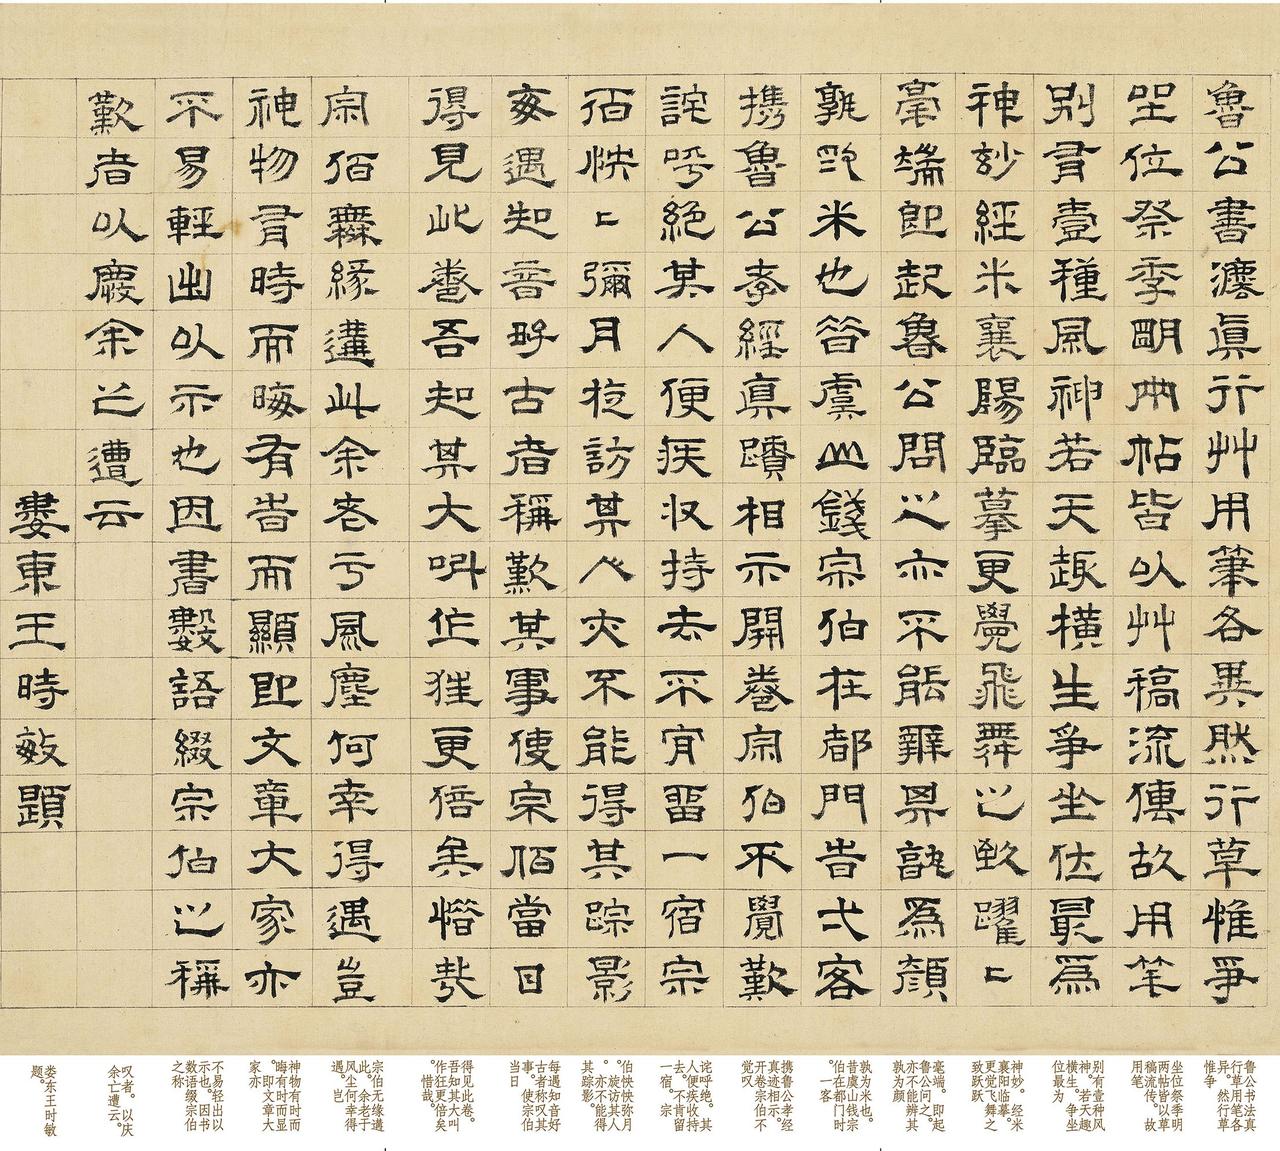 魯公書灋眞行艸用筆各異然行草惟爭
坐位祭季朙兩帖皆以艸稿流傳故用笔
別有壹種風神若天趣橫生爭坐位最爲
神妙經米襄陽臨摹更覺飛舞之致躍〻
毫端即起魯公問之亦不能辨其孰爲顏
孰爲米也昔虞山錢宗伯在都門時弌客
攜魯公孝經真蹟相示開卷宗伯不覺歎
詫呼絕其人便疾收持去不肯留一宿宗
伯怏〻彌月旋訪其人亦不能得其踪影
每遇知音好古者稱歎其事使宗伯當日
得見此卷吾知其大叫作狂更倍矣惜哉
宗伯無緣遘此余老于風塵何幸得遇豈
神物有時而晦有時而顯即文章大家亦
不易輕出以示也因書數語綴宗伯之稱
歎者以慶余亡遭云
婁東王時敏題
鲁公书法真
行草用笔各
异。然行草
惟争
坐位祭季明
两帖皆以草
稿流传。故
用笔
别有壹种风
神。若天趣
横生。争坐
位最为
神妙。经米
襄阳临摹。
更觉飞舞之
致跃跃
毫端。即起
鲁公问之。
亦不能辨其
孰为颜
孰为米也。
昔虞山钱宗
伯在都门时
一客
携鲁公孝经
真迹相示。
开卷宗伯不
觉叹
诧呼绝。其
人便疾收持
去。不肯留
一宿。宗
伯怏怏弥月
。旋访其人
。亦不能得
其踪影。
每遇知音好
古者称叹其
事。使宗伯
当日
得见此卷。
吾知其大叫
作狂更倍矣
。惜哉。
宗伯无缘遘
此。余老于
风尘何幸得
遇。岂
神物有时而
晦有时而显
。即文章大
家亦
不易轻出以
示也。因书
数语缀宗伯
之称
叹者。以庆
余亡遭云。
娄东王时敏
题。